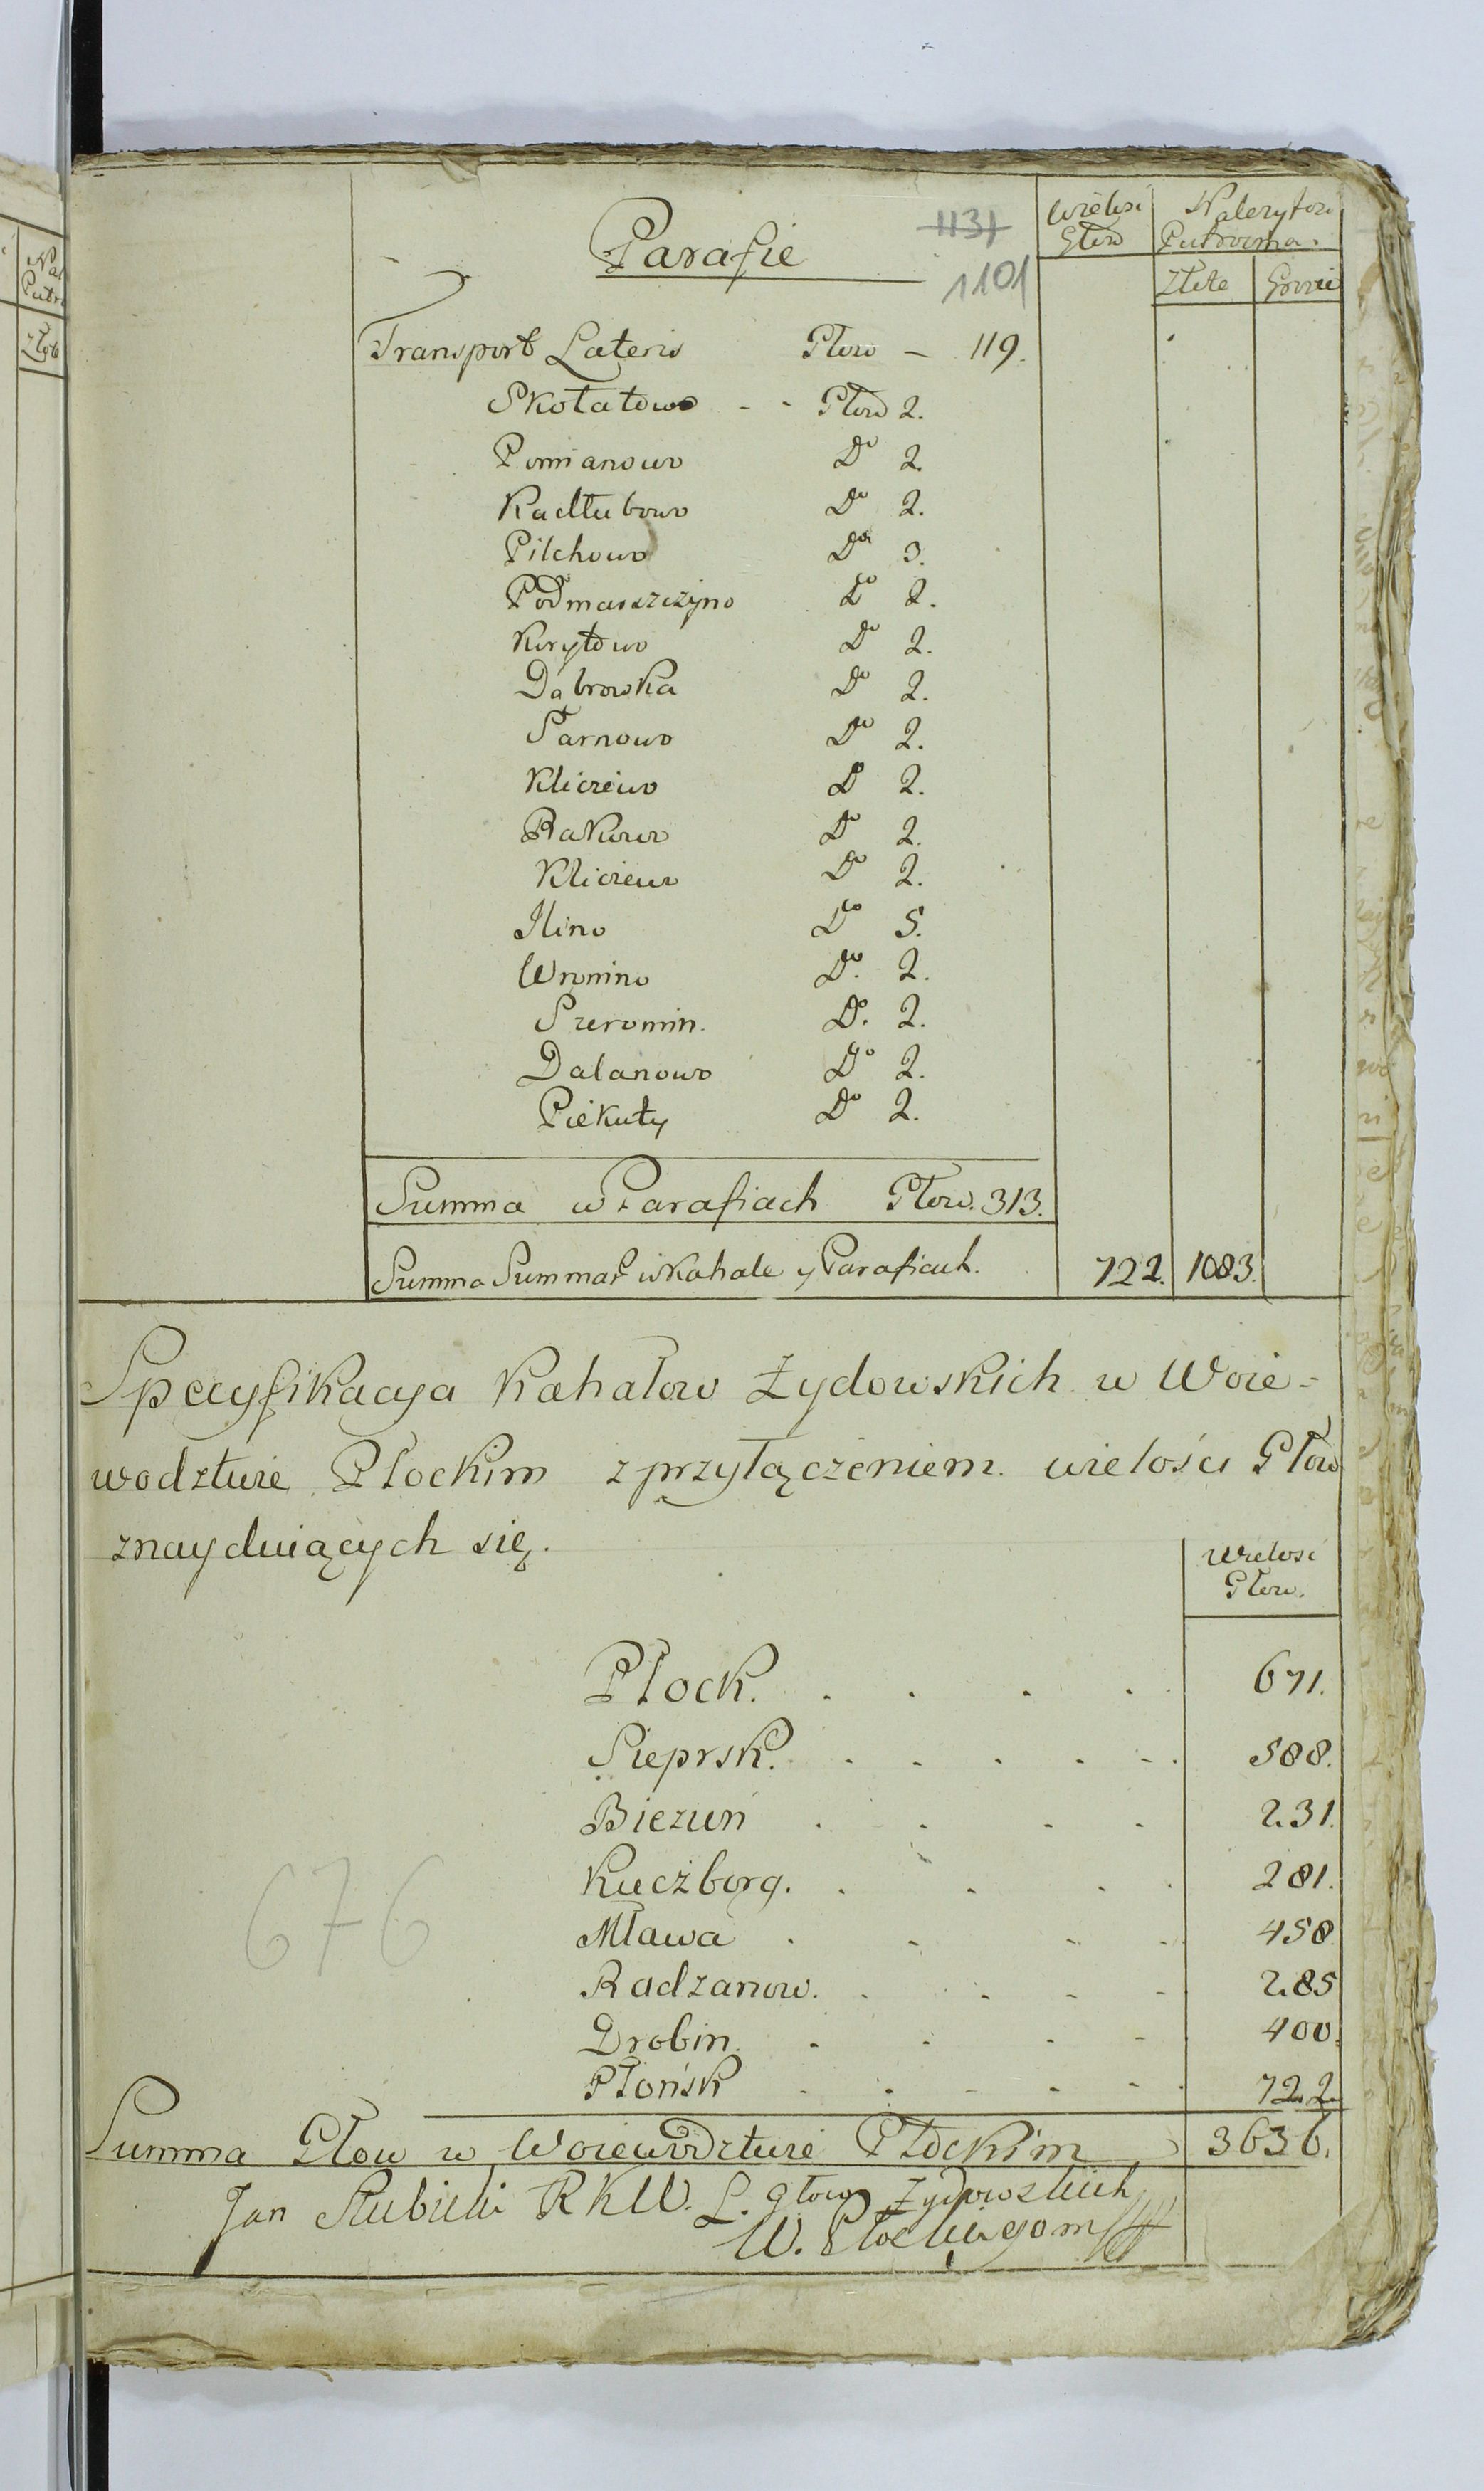 Na
Putr
Zło
1131
1101
Parafie
Wielosć Głow
Należytosc Putroczna.
Złote Grosze
Transport Lateris Głow – 119.
Skołatowo - - Głow 2.
Pomianowo Do 2.
Kadłubowo Do 2.
Pilchowo Do 3.
Podmarszczyno Do 2.
Korytowo Do 2.
Dąbrowka Do 2.
Tarnowo Do 2.
Kliczewo Do 2.
Rakowo Do 2.
Kliczewo Do 2.
Ilino Do 5.
Wronino Do. 2.
Szeromin. Do. 2.
Dalanowo Do 2.
Piekuty Do 2.
Summa w Parafiach Głow. 313.
Summa Summar: w Kahale y Parafiach. 722. 1083.
Specyfikacya Kahałow Żydowskich w Woie-
wodztwie Płockim z przyłączeniem wielosci Głow
znayduiących się.
Wielosć
Głow.
Płock. . . . . 671.
Sieprsk. . . . . 588.
Biezuń . . . . 231.
Kuczborg. . . . . 281.
Mława . . . . 458
Radzanow. . . . . 285
Drobin. . . . . 400.
Płońsk . . . . 722.
676
Summa Głow w Woiewodztwie Płockim 3636.
Jan Słubicki R K W. L. głow Żydowskich
W. Płockiego mp